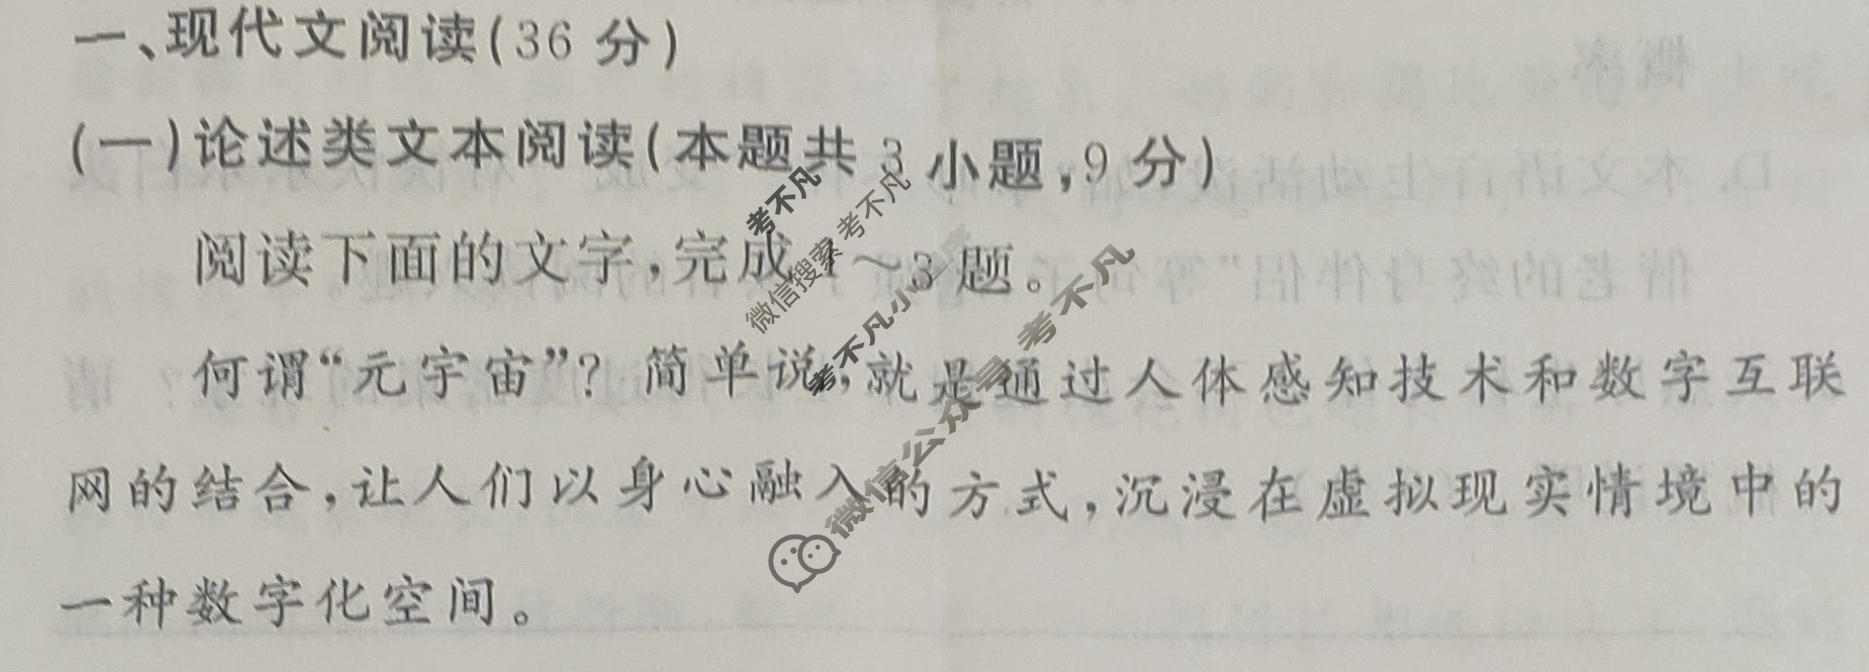 一、现代文阅读(36 分)
(一)论述类文本阅读(本题共 3 小题,9 分)
阅读下面的文字,完成 1～3 题。
何谓“元宇宙”? 简单说,就是通过人体感知技术和数字互联
网的结合,让人们以身心融入的方式,沉浸在虚拟现实情境中的
一种数字化空间。
考不凡
微信搜索 考不凡
考不凡小
微信公众号 考不凡